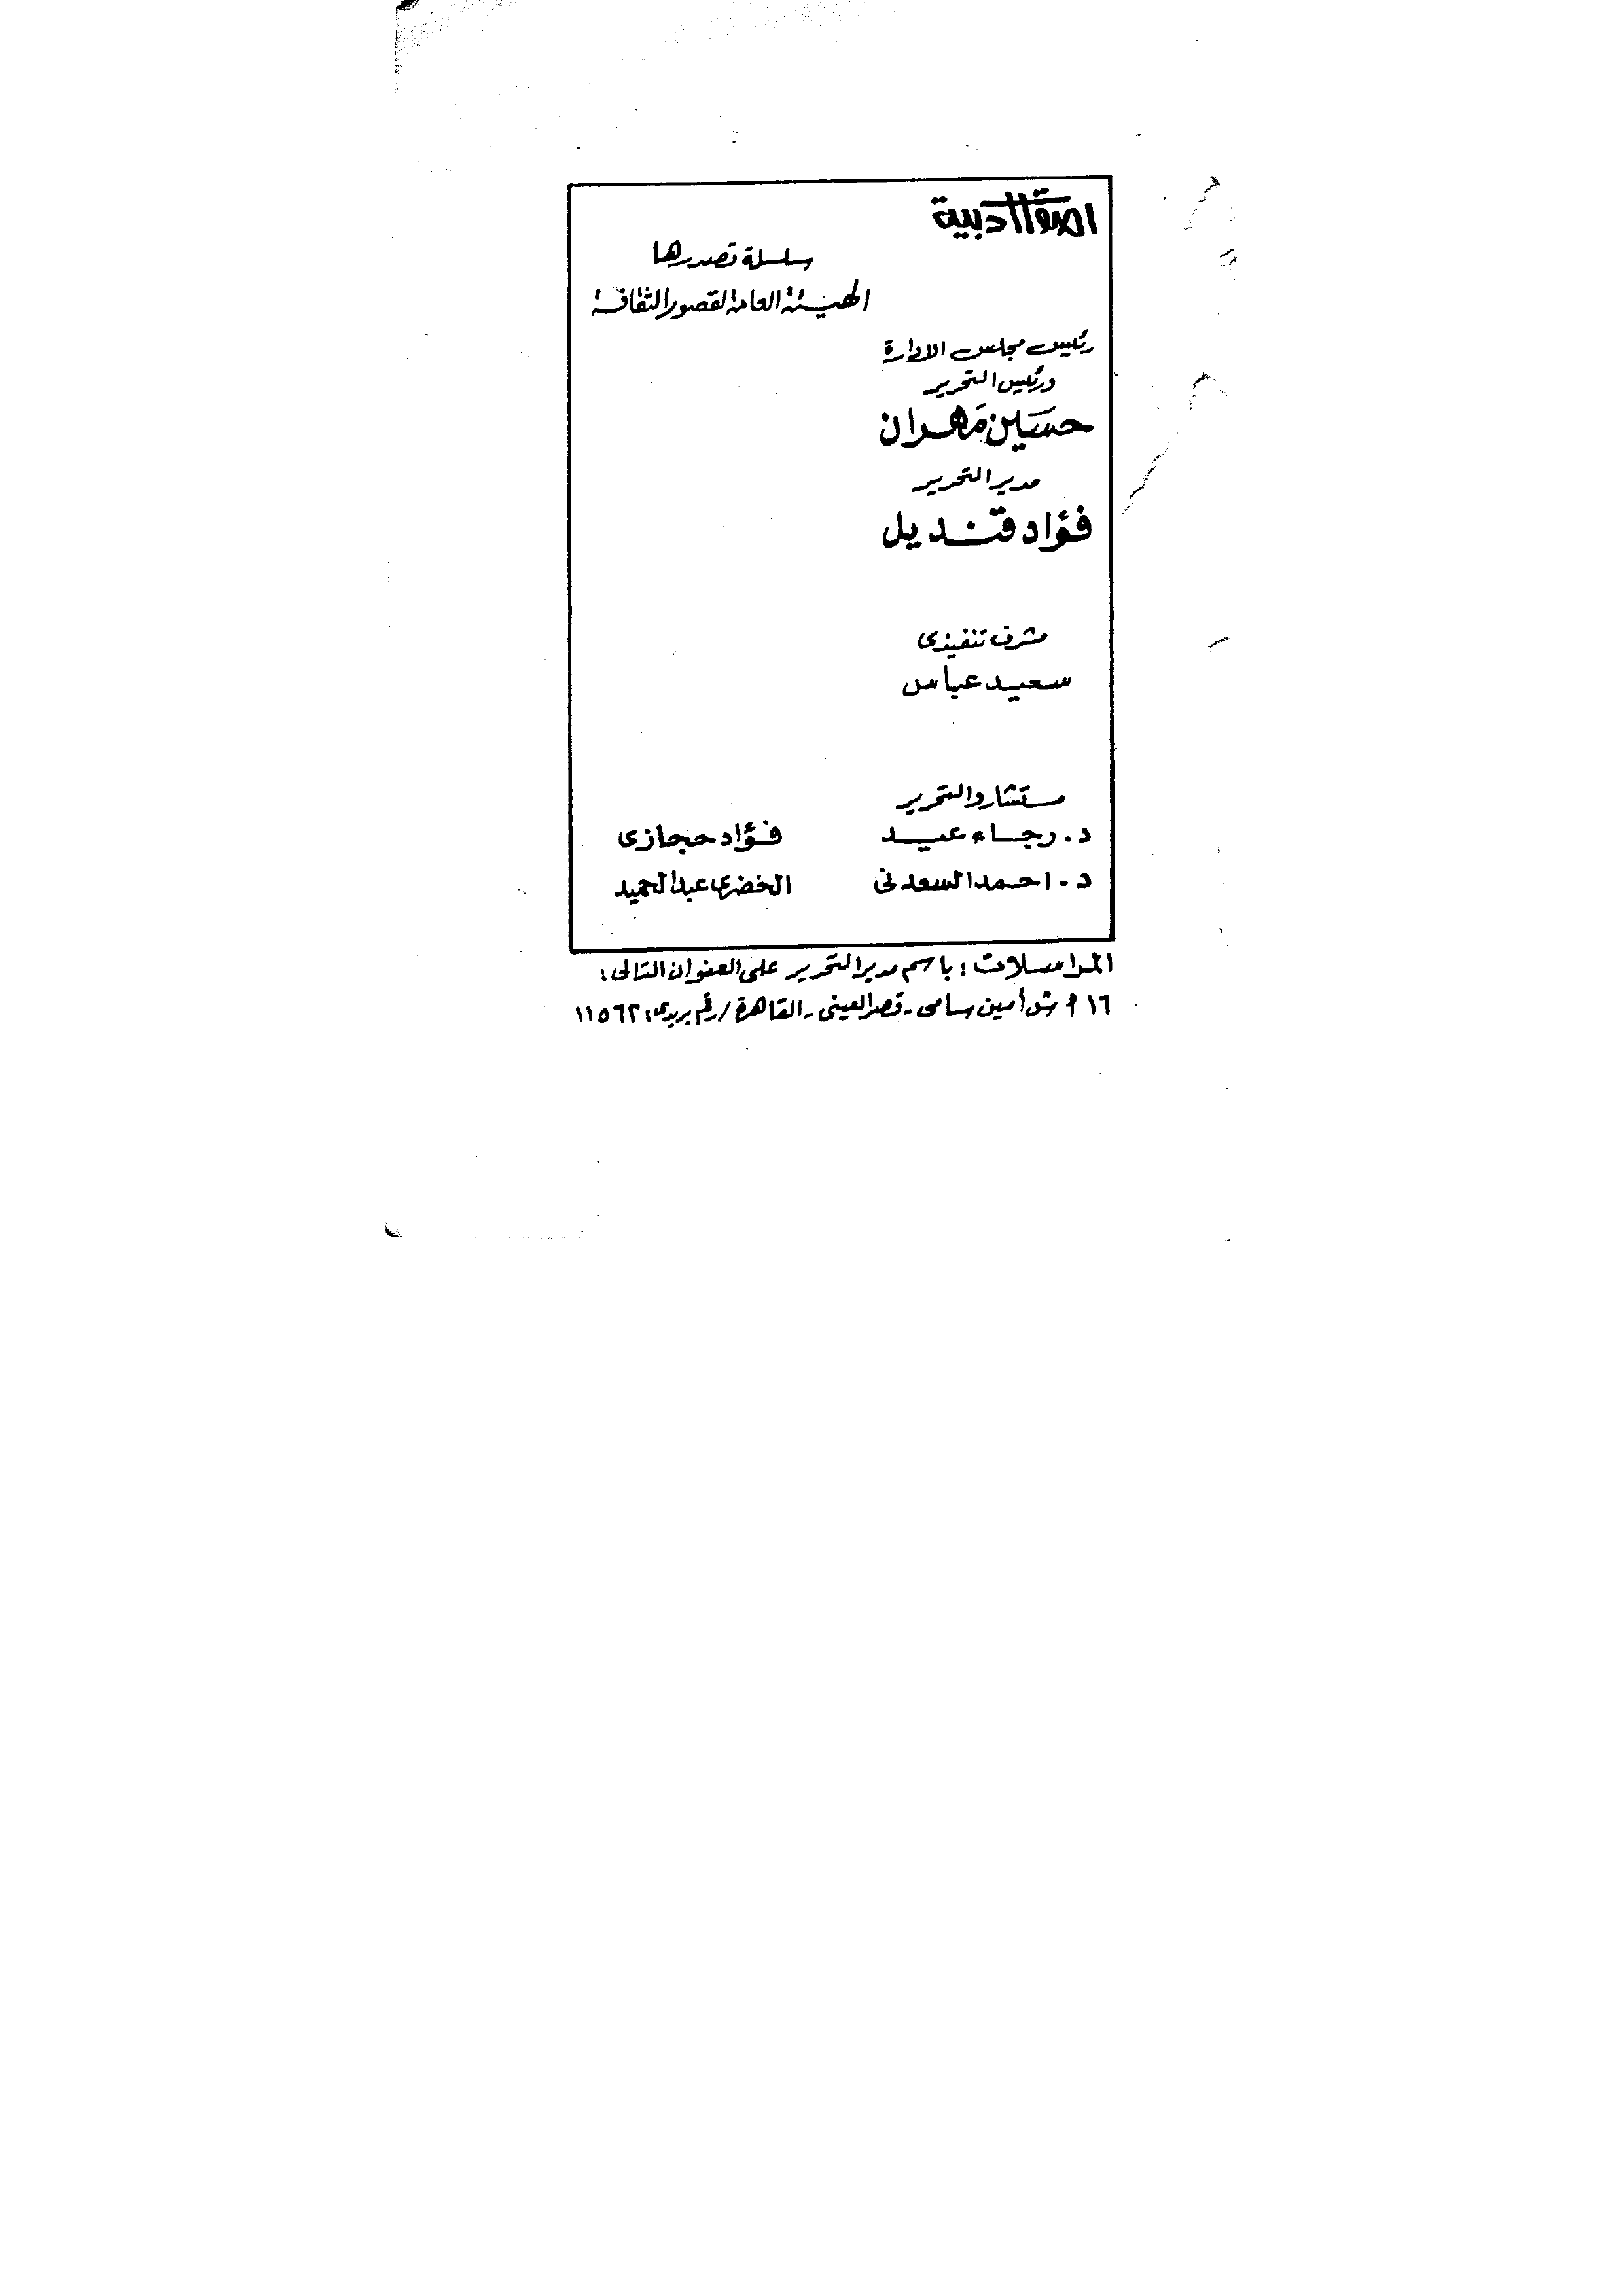 أصوات أدبية
سلسلة تصدرها
الهيئة العامة لقصور الثقافة
رئيس مجلس الادارة
ورئيس التحرير
حسين مهران
مدير التحرير
فؤاد قنديل
مشرف تنفيذى
سعيد عباس
مستشارو التحرير
د. رجاء عيد
فؤاد حجازى
د. احمد السعدنى
الخضرى عبد الحميد
المراسلات : باسم مدير التحرير على العنوان التالى :
١٦ أ ش أمين سامى - قصر العينى - القاهرة / رقم بريدى : ١١٥٦٢